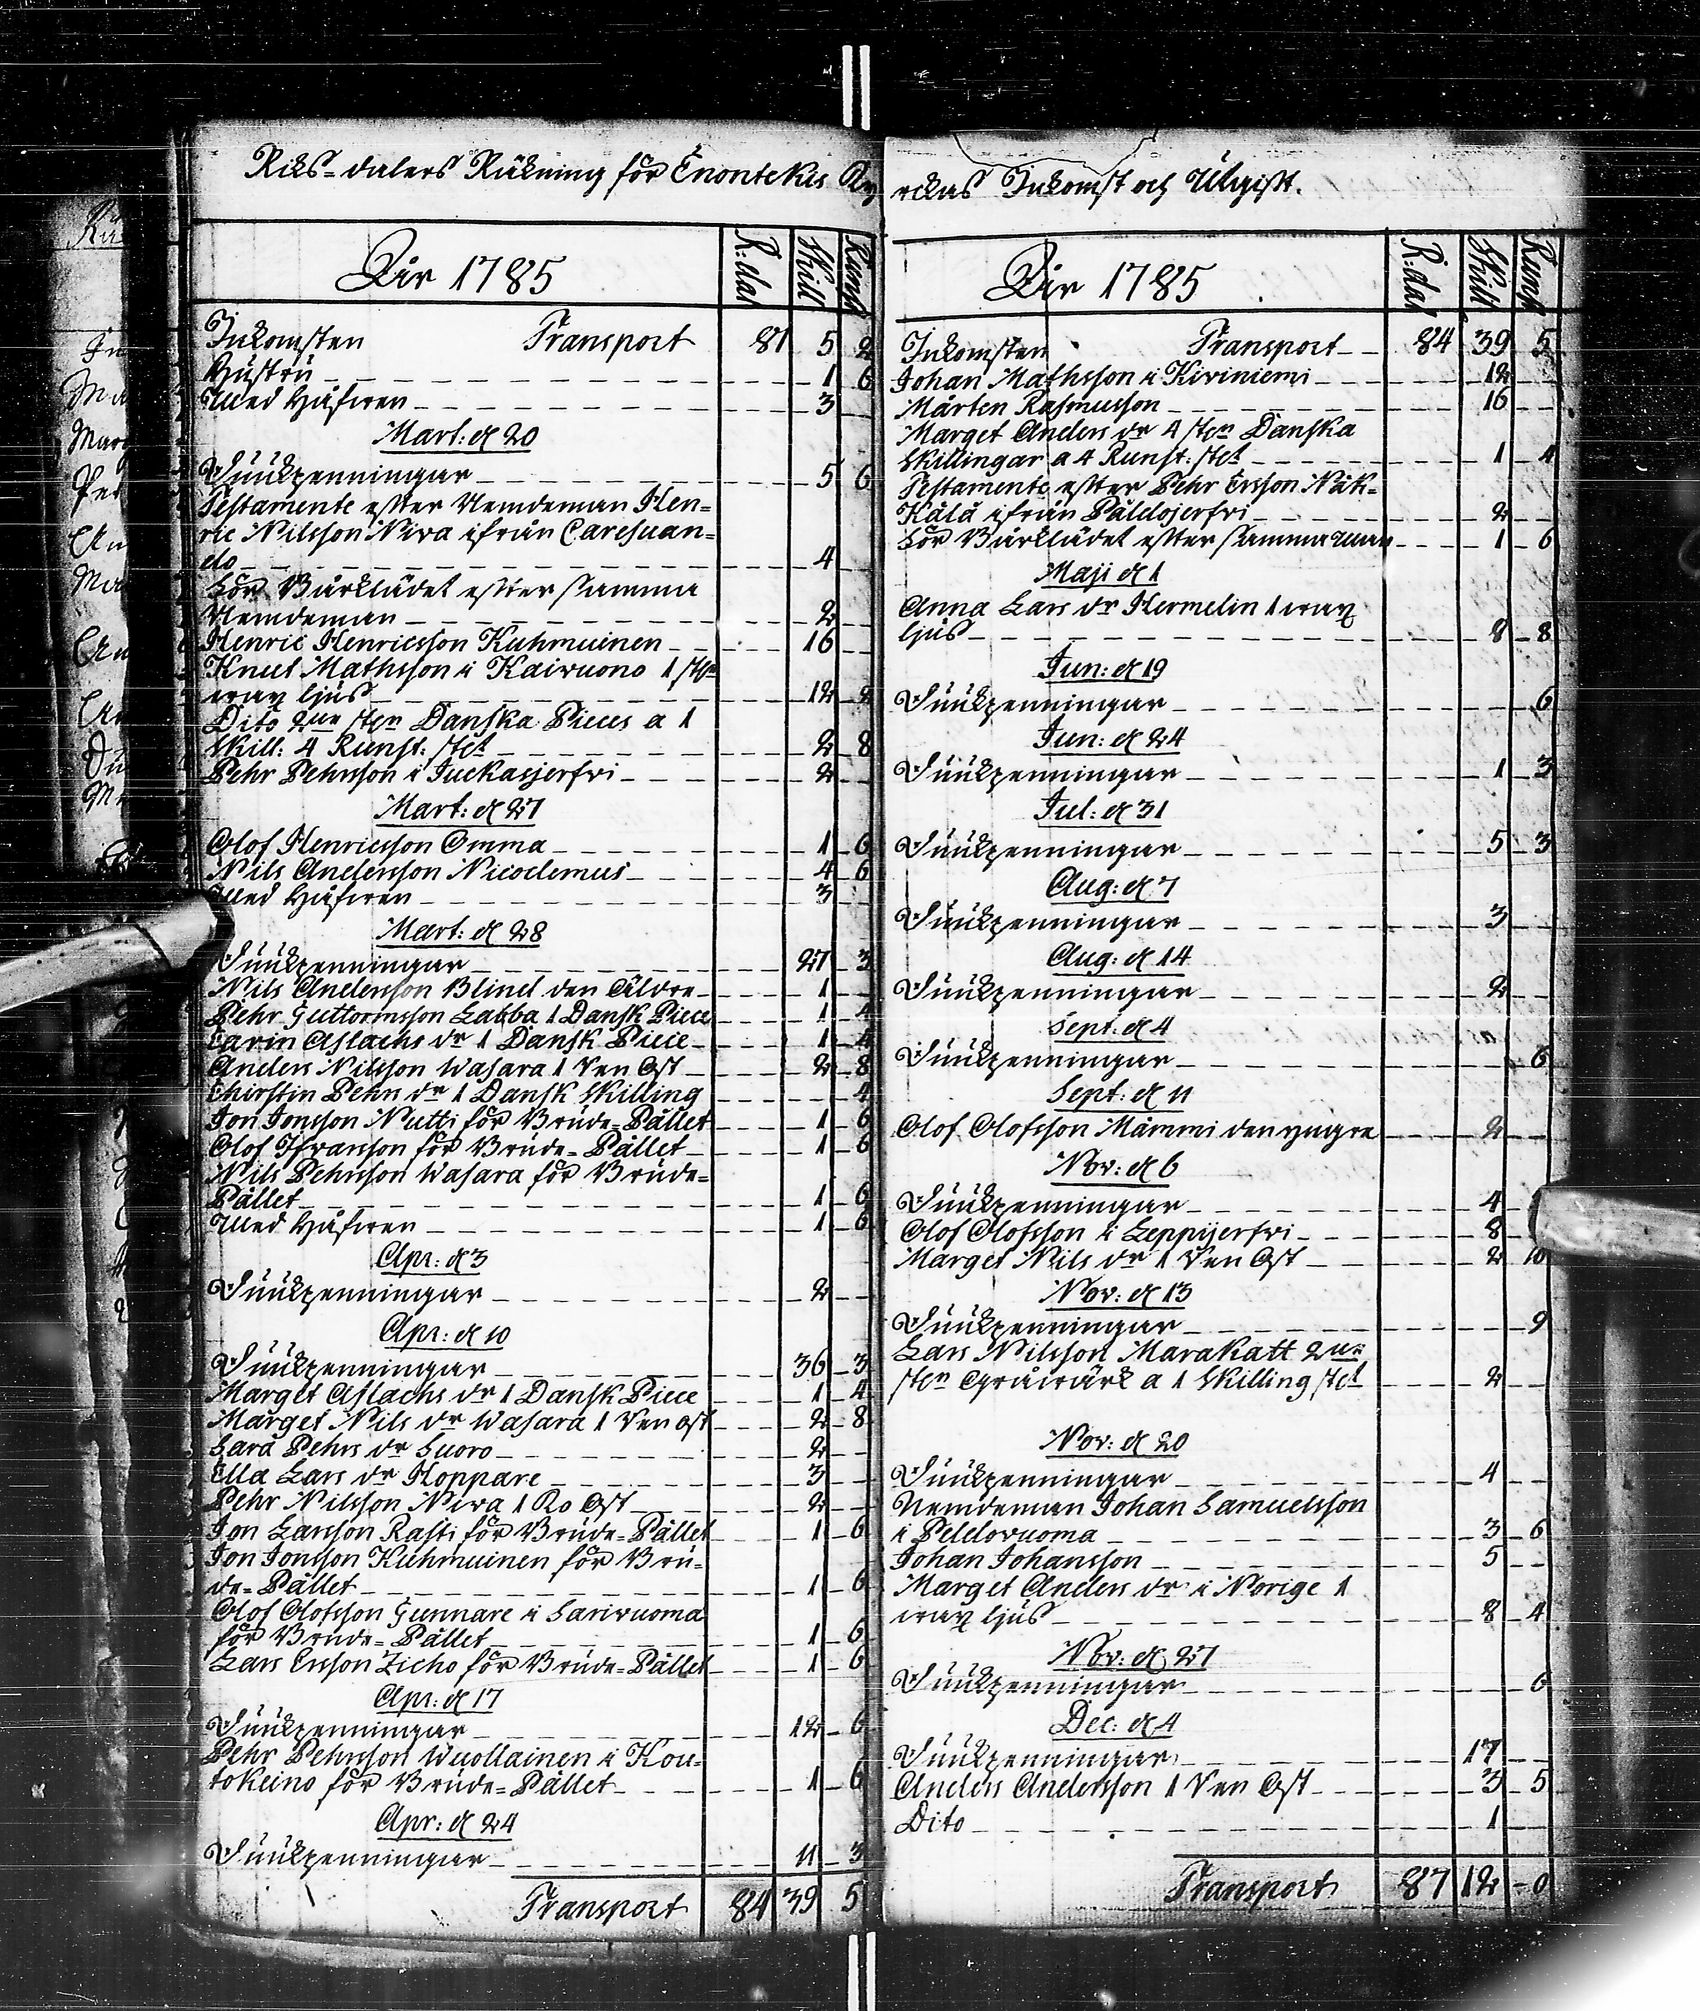 Riks-dalers Räkning för Enontekis Kyrckas Inkomst och Utgift.
Åir 1785 R:dal Skill Runst
Inkomsten Transport 81 5 2
Hustru 1 6
Med Håfwen 3
Mart: d 20
Siukpenningar 5 6
Testamente efter Nemdeman Hen-
ric Nilsson Niva ifrån Caresuan-
do 4
För Bårklädet efter samma
Nemdeman 2
Henric Henricsson Kuhmuinen 16
Knut Mathsson i Kaivuono 1 st:n
wax ljus 12 2
Dito 2ne st:n Danska Pieces a 1
Skill: 4 Runst: st:t 2 8
Pehr Pehrsson i Juckasjerfvi 2
Mart: d 27
Olof Henricsson Omma 1 6
Nils Andersson Nicodemus 4 6
Med Håfwen 3
Mart: d 28
Siukpenningar 27 3
Nils Andersson Blind den Äldre 1
Pehr Guttormsson Labba 1 Dansk Piece 1 4
Carin Aslachs dr 1 Dansk Piece 1 4
Anders Nilsson Wasara 1 Ren Ost 2 8
Chirstin Pehrs dr 1 Dansk Skilling 4
Jon Jonsson Nutti för Brude-Pället 1 6
Olof Ifvarsson för Brude-Pället 1 6
Nils Pehrsson Wasara för Brude-
Pället 1 6
Med Håfwen 1 6
Apr: d 3
Siukpenningar 2
Apr: d 10
Siukpenningar 36 3
Marget Aslachs dr 1 Dansk Piece 1 4
Marget Nils dr Wasara 1 Ren ost 2 8
Sara Pehrs dr Suoro 2
Ella Lars dr Hoppare 3
Pehr Nilsson Niva 1 Ko Ost 2
Jon Larsson Rasti för Brude-Pället 1 6
Jon Jonsson Kuhmuinen för Bru-
de-Pället 1 6
Olof Olofsson Gunnare i Sarivuoma
för Brude-Pället 1 6
Lars Ersson Zicho för Brude-Pället 1 6
Apr: d 17
Siukpenningar 12 6
Pehr Pehrsson Wuollainen i Kou-
tokeino för Brude-Pället 1 6
Apr: d 24
Siukpenningar 11 3
Transport 84 39 5
Åir 1785 R:dal Skill Runst
Inkomsten Transport 84 39 5
Johan Mathsson i Kiviniemi 12
Mårten Rasmusson 16
Marget Anders dr 4 st:n Danska
Skillingar a 4 Runst: st:t 1 4
Testamente efter Pehr Ersson Näk-
kälä ifrån Päldojerfvi 2
För Bårklädet efter samma man 1 6
Maji d 1
Anna Lars dr Hermelin 1 wax
ljus 8 8
Jun: d 19
Siukpenningar 6
Jun: d 24
Siukpenningar 1 3
Jul: d 31
Siukpenningar 5 3
Aug: d 7
Siukpenningar 3
Aug: d 14
Siukpenningar 2
Sept: d 4
Siukpenningar 6
Sept: d 11
Olof Olofsson Mämmi den yngre 2
Nov: d 6
Siukpenningar 4
Olof Olofsson i Leppijerfvi 8
Marget Nils dr 1 Ren Ost 2 10
Nov: d 13
Siukpenningar 9
Lars Nilsson Marakatt 2ne
st:n Gråwärk a 1 Skilling st:t 2
Nov: d 20
Siukpenningar 4
Nemdeman Johan Samuelsson
i Peldovuoma 3 6
Johan Johansson 5
Marget Anders dr i Norige 1
wax ljus 8 4
Nov: d 27
Siukpenningar 6
Dec: d 4
Siukpenningar 17
Anders Andersson 1 Ren Ost 3 5
Dito 1
Transport 87 12 0